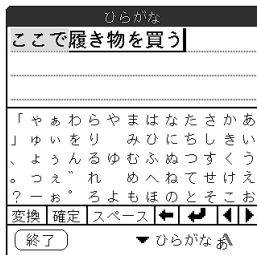 ひらがな
ここで履き物を買う
「ゃぁわらやまはなたさかあ
」ゅぃをり みひにちしきい
、ょぅんるゆむふぬつすくう
。っぇ゛れ めへねてせけえ
？ーぉ゜ろよもほのとそこお
変換 確定 スペース ← ↵ ◀ ▶
終了 ▼ ひらがな あA